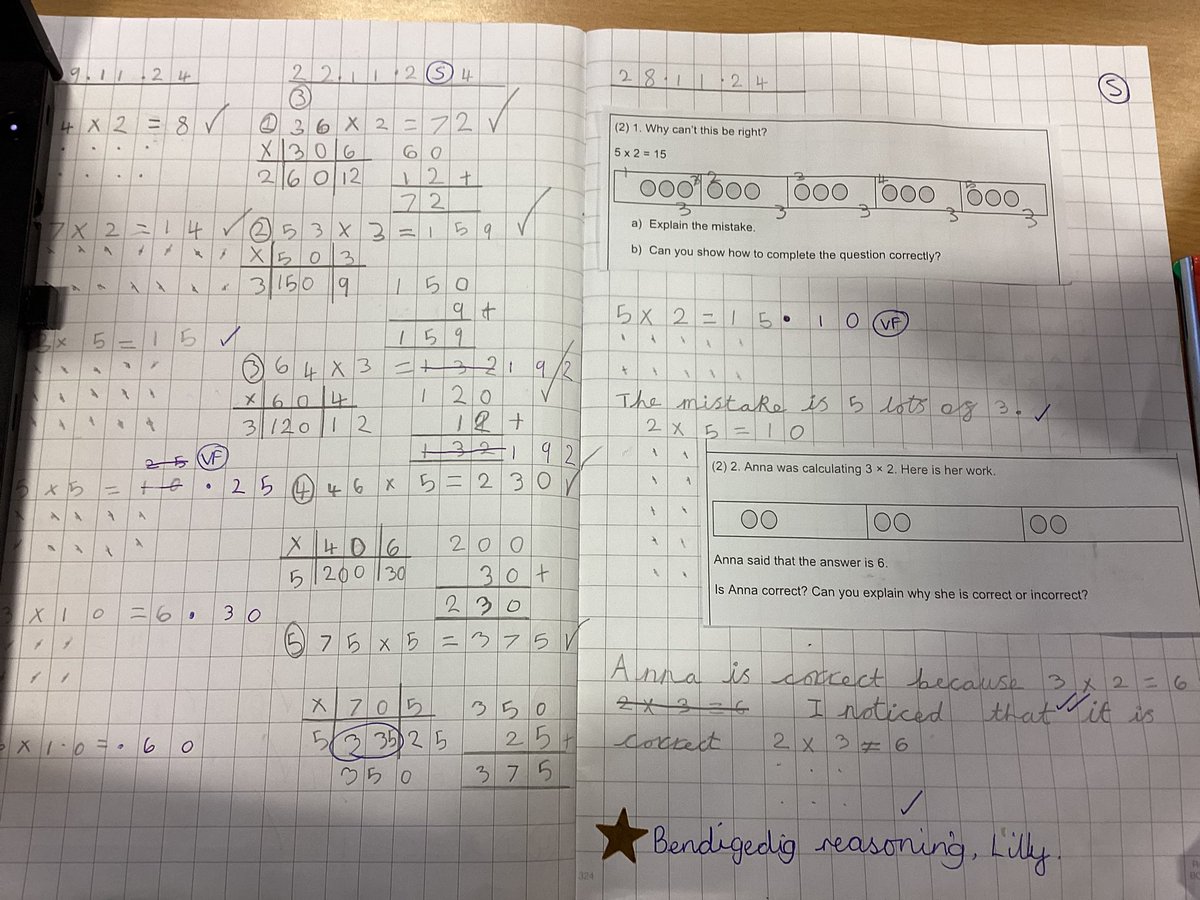 9.11.24
4 x 2 = 8 ✓
7 x 2 = 14 ✓
3 x 5 = 15 ✓
2 5 VF
5 x 5 = 10 . 25
3 x 10 = 6 . 30
x 10 = . 60
22.11.2 S 4
3
1 36 x 2 = 72 ✓
x 30 6 60
2 60 12 12 +
72
2 53 x 3 = 159 ✓
x 50 3
3 150 9 150
9 +
159
3 64 x 3 = 132 192 ✓
x 60 4 120
3 120 12 12 +
132 192
4 46 x 5 = 230 ✓
x 40 6 200
5 200 30 30 +
230
5 75 x 5 = 375 ✓
x 70 5 350
5 3 35 25 25 +
350 375
28.11.24
S
(2) 1. Why can't this be right?
5 x 2 = 15
1 2 3 4 5
3 3 3 3 3
a) Explain the mistake.
b) Can you show how to complete the question correctly?
5 x 2 = 15 . 10 VF
The mistake is 5 lots of 3. ✓
2 x 5 = 10
(2) 2. Anna was calculating 3 × 2. Here is her work.
Anna said that the answer is 6.
Is Anna correct? Can you explain why she is correct or incorrect?
Anna is correct because 3 x 2 = 6
2 x 3 = 6 I noticed that ✓✓ it is
correct 2 x 3 = 6
✓
Bendigedig reasoning, Lilly.
324